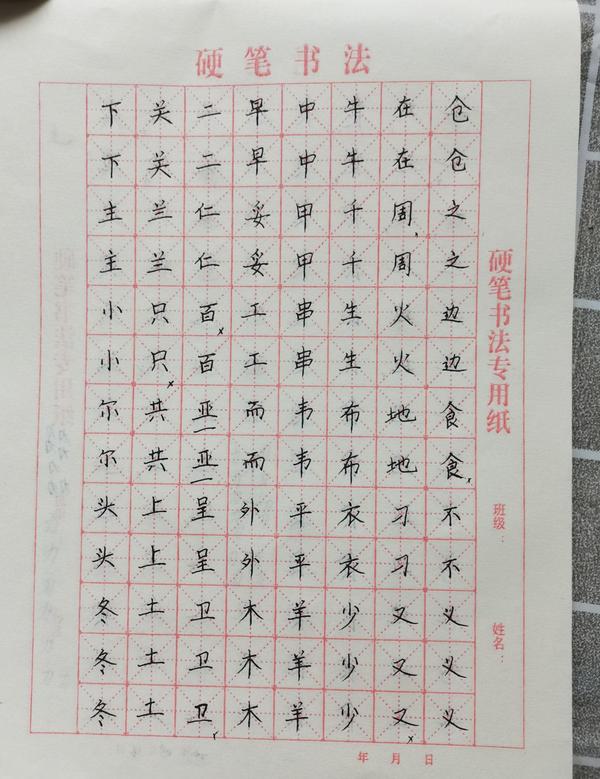 硬笔书法
下 关 二 早 中 牛 在 仓
下 关 二 早 中 牛 在 仓
主 兰 仁 妥 甲 千 周 之
主 兰 仁 妥 甲 千 周 之
小 只 百 工 串 生 火 边
小 只 百 工 串 生 火 边
尔 共 亚 而 韦 布 地 食
尔 共 亚 而 韦 布 地 食
头 上 呈 外 平 衣 习 不
头 上 呈 外 平 衣 习 不
冬 土 卫 木 羊 少 又 义
冬 土 卫 木 羊 少 又 义
冬 土 卫 木 羊 少 又 义
硬笔书法专用纸
班级：
姓名：
年 月 日